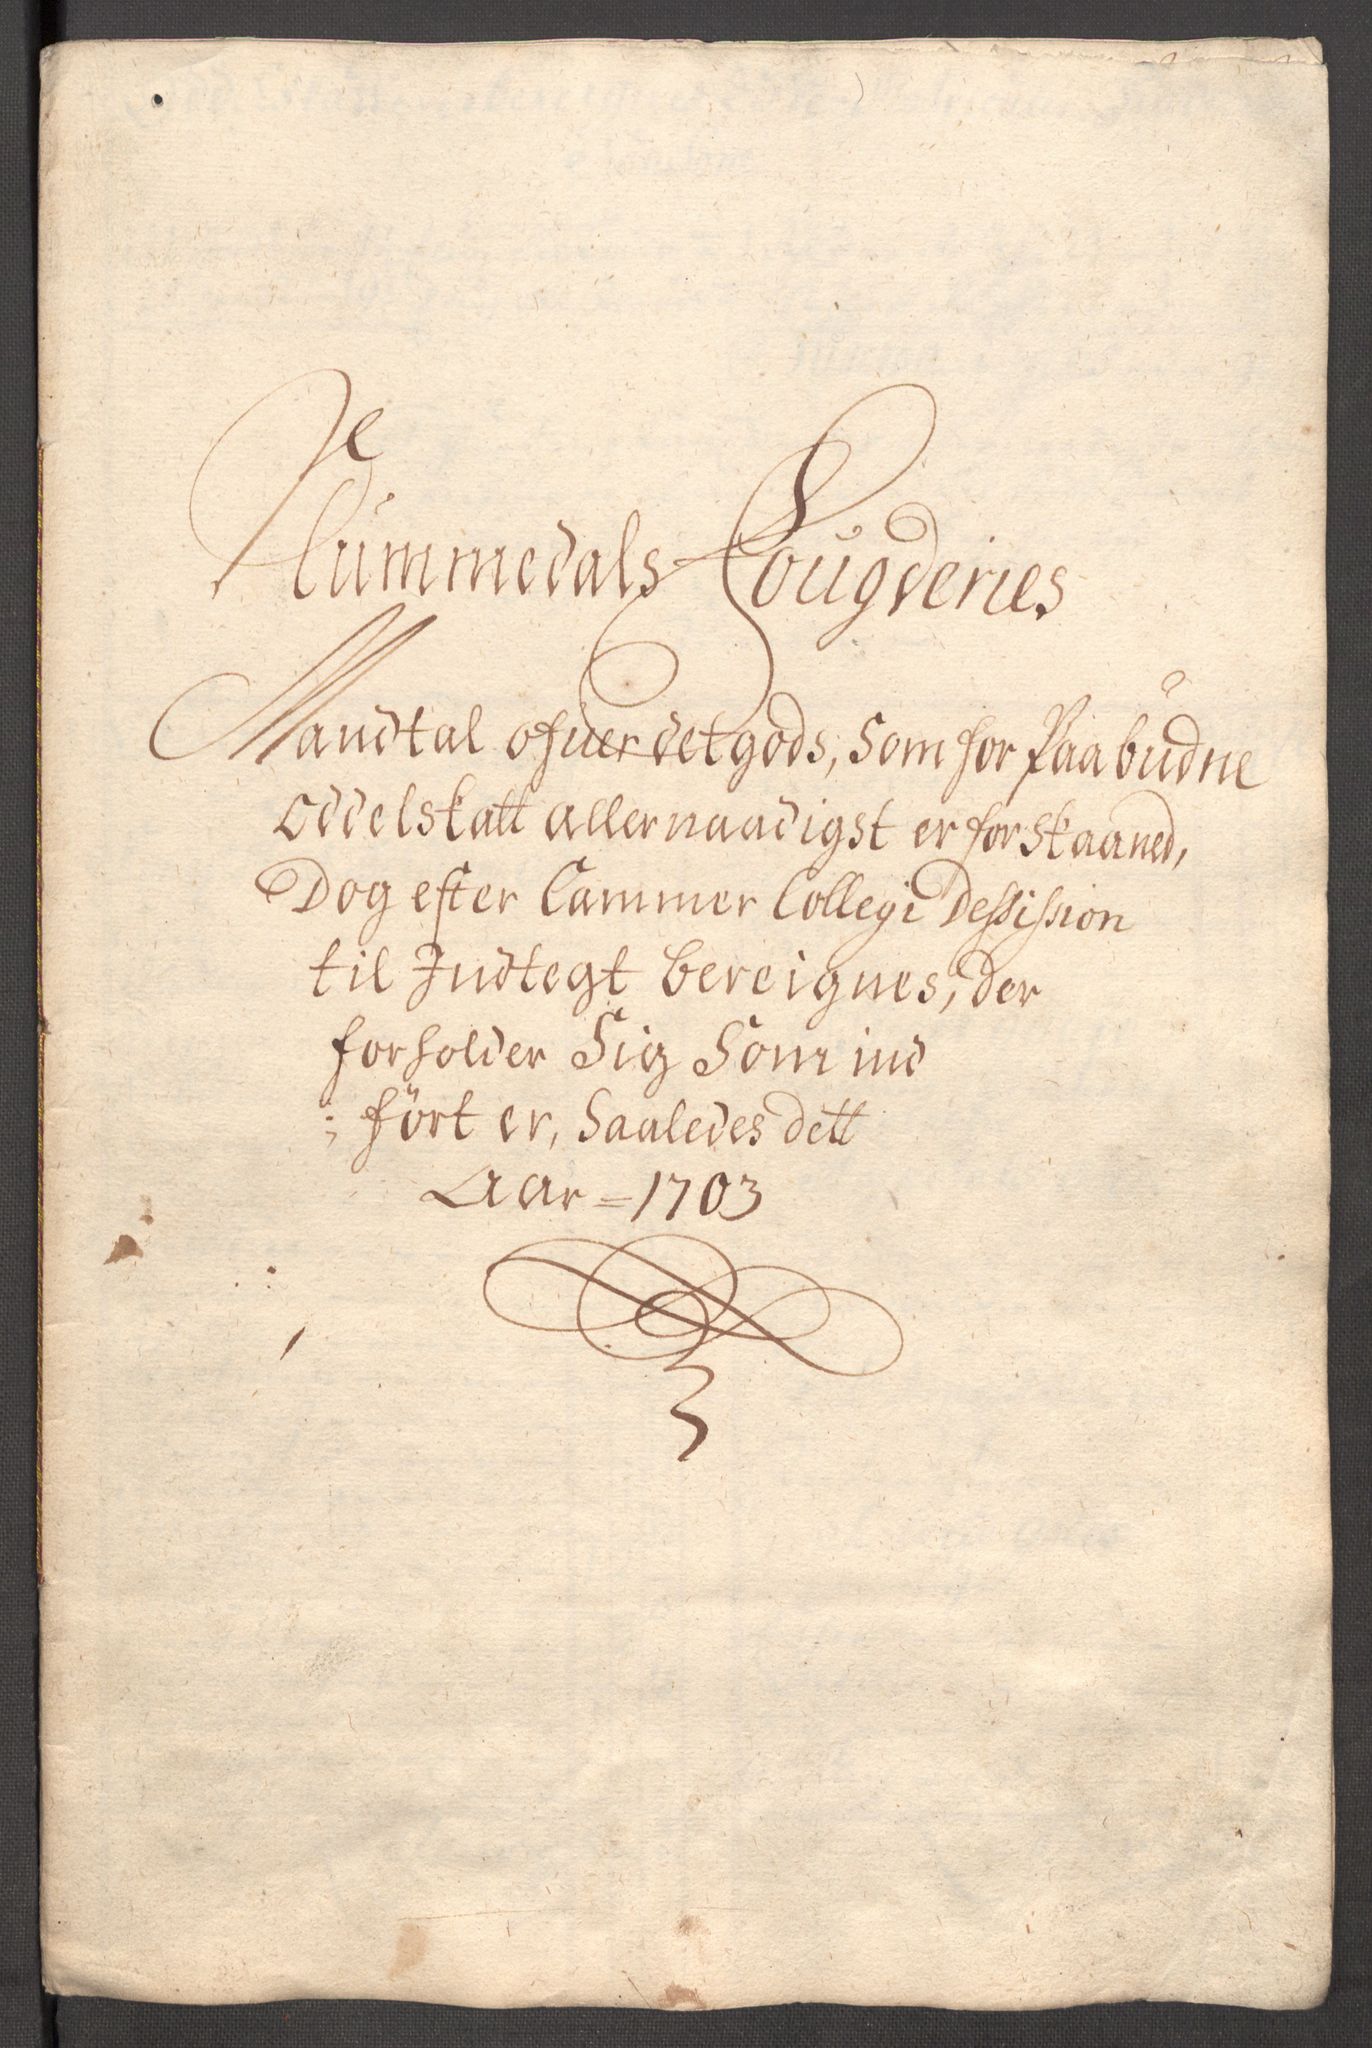 Nummedals Fougderies
Mandtal ofuer det gods, som for Paabudne
Oddelskatt allernaadigst er forskaaned,
Dog efter Cammer Collegi Dessission
til Indtegt bereignes, der
forholder Sig Som ind
; ført er, Saaledes dett
Aar = 1703